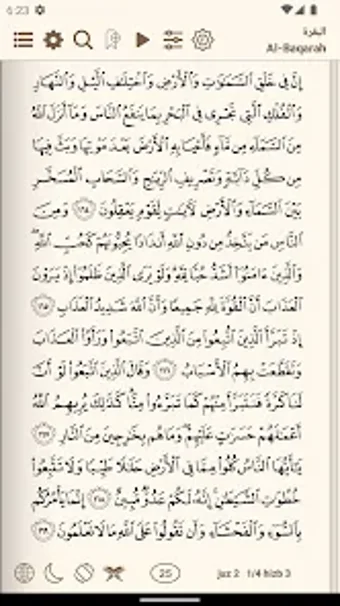 6:23
البقرة
Al-Baqarah
إِنَّ فِي خَلْقِ ٱلسَّمَٰوَٰتِ وَٱلْأَرْضِ وَٱخْتِلَٰفِ ٱلَّيْلِ وَٱلنَّهَارِ
وَٱلْفُلْكِ ٱلَّتِي تَجْرِي فِي ٱلْبَحْرِ بِمَا يَنفَعُ ٱلنَّاسَ وَمَآ أَنزَلَ ٱللَّهُ
مِنَ ٱلسَّمَآءِ مِن مَّآءٍ فَأَحْيَا بِهِ ٱلْأَرْضَ بَعْدَ مَوْتِهَا وَبَثَّ فِيهَا
مِن كُلِّ دَآبَّةٍ وَتَصْرِيفِ ٱلرِّيَٰحِ وَٱلسَّحَابِ ٱلْمُسَخَّرِ
بَيْنَ ٱلسَّمَآءِ وَٱلْأَرْضِ لَأٓيَٰتٍ لِّقَوْمٍ يَعْقِلُونَ ١٦٤ وَمِنَ
ٱلنَّاسِ مَن يَتَّخِذُ مِن دُونِ ٱللَّهِ أَندَادًا يُحِبُّونَهُمْ كَحُبِّ ٱللَّهِ ۖ
وَٱلَّذِينَ ءَامَنُوٓا۟ أَشَدُّ حُبًّا لِّلَّهِ ۗ وَلَوْ يَرَى ٱلَّذِينَ ظَلَمُوٓا۟ إِذْ يَرَوْنَ
ٱلْعَذَابَ أَنَّ ٱلْقُوَّةَ لِلَّهِ جَمِيعًا وَأَنَّ ٱللَّهَ شَدِيدُ ٱلْعَذَابِ ١٦٥
إِذْ تَبَرَّأَ ٱلَّذِينَ ٱتُّبِعُوا۟ مِنَ ٱلَّذِينَ ٱتَّبَعُوا۟ وَرَأَوُا۟ ٱلْعَذَابَ
وَتَقَطَّعَتْ بِهِمُ ٱلْأَسْبَابُ ١٦٦ وَقَالَ ٱلَّذِينَ ٱتَّبَعُوا۟ لَوْ أَنَّ
لَنَا كَرَّةً فَنَتَبَرَّأَ مِنْهُمْ كَمَا تَبَرَّءُوا۟ مِنَّا ۗ كَذَٰلِكَ يُرِيهِمُ ٱللَّهُ
أَعْمَٰلَهُمْ حَسَرَٰتٍ عَلَيْهِمْ ۖ وَمَا هُم بِخَٰرِجِينَ مِنَ ٱلنَّارِ ١٦٧
يَٰٓأَيُّهَا ٱلنَّاسُ كُلُوا۟ مِمَّا فِي ٱلْأَرْضِ حَلَٰلًا طَيِّبًا وَلَا تَتَّبِعُوا۟
خُطُوَٰتِ ٱلشَّيْطَٰنِ ۚ إِنَّهُۥ لَكُمْ عَدُوٌّ مُّبِينٌ ١٦٨ إِنَّمَا يَأْمُرُكُم
بِٱلسُّوٓءِ وَٱلْفَحْشَآءِ وَأَن تَقُولُوا۟ عَلَى ٱللَّهِ مَا لَا تَعْلَمُونَ ١٦٩
25
juz 2 1/4 hizb 3